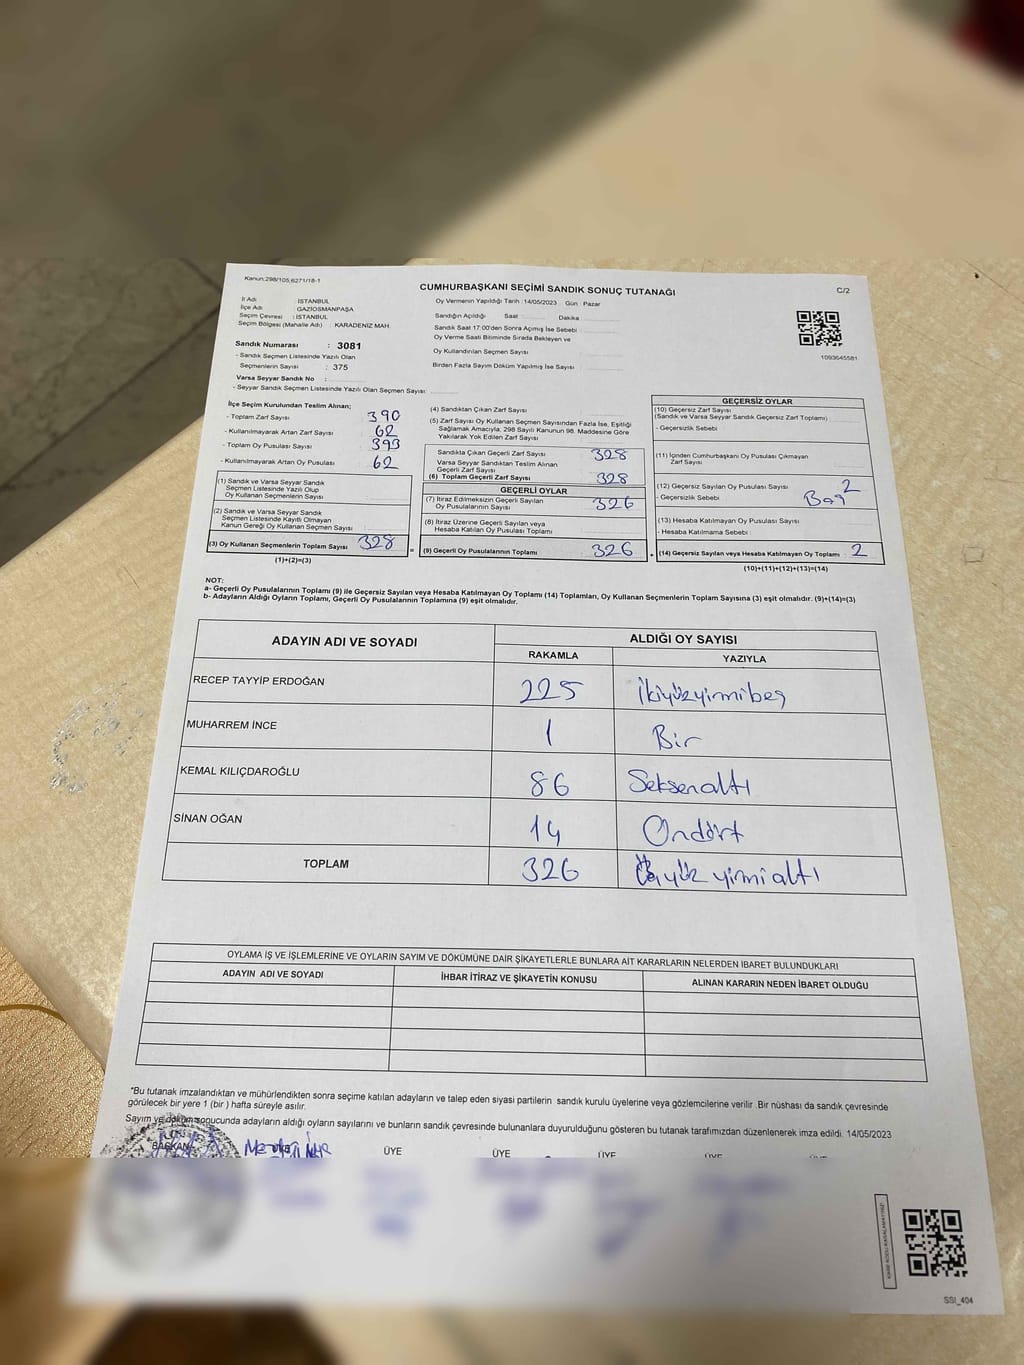 Kanun:298/105,6271/18-1
CUMHURBAŞKANI SEÇİMİ SANDIK SONUÇ TUTANAĞI
C/2
İl Adı : İSTANBUL
İlçe Adı : GAZİOSMANPAŞA
Seçim Çevresi : İSTANBUL
Seçim Bölgesi (Mahalle Adı) : KARADENİZ MAH.
Oy Vermenin Yapıldığı Tarih :14/05/2023 Gün : Pazar
Sandığın Açıldığı Saat : Dakika
Sandık Saat 17:00'den Sonra Açımış İse Sebebi
Oy Verme Saati Bitiminde Sırada Bekleyen ve
Oy Kullandırılan Seçmen Sayısı
Birden Fazla Sayım Döküm Yapılmış İse Sayısı
1093645581
Sandık Numarası : 3081
- Sandık Seçmen Listesinde Yazılı Olan
Seçmenlerin Sayısı : 375
Varsa Seyyar Sandık No :
- Seyyar Sandık Seçmen Listesinde Yazılı Olan Seçmen Sayısı:
İlçe Seçim Kurulundan Teslim Alınan;
- Toplam Zarf Sayısı 390
- Kullanılmayarak Artan Zarf Sayısı 62
- Toplam Oy Pusulası Sayısı 393
- Kullanılmayarak Artan Oy Pusulası 62
(1) Sandık ve Varsa Seyyar Sandık
Seçmen Listesinde Yazılı Olup
Oy Kullanan Seçmenlerin Sayısı
(2) Sandık ve Varsa Seyyar Sandık
Seçmen Listesinde Kayıtlı Olmayan
Kanun Gereği Oy Kullanan Seçmen Sayısı
(3) Oy Kullanan Seçmenlerin Toplam Sayısı 328 =
(1)+(2)=(3)
(4) Sandıktan Çıkan Zarf Sayısı
(5) Zarf Sayısı Oy Kullanan Seçmen Sayısından Fazla İse, Eşitliği
Sağlamak Amacıyla, 298 Sayılı Kanunun 98. Maddesine Göre
Yakılarak Yok Edilen Zarf Sayısı
Sandıkta Çıkan Geçerli Zarf Sayısı 328
Varsa Seyyar Sandıktan Teslim Alınan
Geçerli Zarf Sayısı
(6) Toplam Geçerli Zarf Sayısı 328
GEÇERLİ OYLAR
(7) İtiraz Edilmeksizin Geçerli Sayılan
Oy Pusulalarının Sayısı 326
(8) İtiraz Üzerine Geçerli Sayılan veya
Hesaba Katılan Oy Pusulası Toplamı
(9) Geçerli Oy Pusulalarının Toplamı 326 +
GEÇERSİZ OYLAR
(10) Geçersiz Zarf Sayısı
(Sandık ve Varsa Seyyar Sandık Geçersiz Zarf Toplamı)
- Geçersizlik Sebebi
(11) İçinden Cumhurbaşkanı Oy Pusulası Çıkmayan
Zarf Sayısı
(12) Geçersiz Sayılan Oy Pusulası Sayısı 2
- Geçersizlik Sebebi Boş
(13) Hesaba Katılmayan Oy Pusulası Sayısı
- Hesaba Katılmama Sebebi
(14) Geçersiz Sayılan veya Hesaba Katılmayan Oy Toplamı 2
(10)+(11)+(12)+(13)=(14)
NOT:
a- Geçerli Oy Pusulalarının Toplamı (9) ile Geçersiz Sayılan veya Hesaba Katılmayan Oy Toplamı (14) Toplamları, Oy Kullanan Seçmenlerin Toplam Sayısına (3) eşit olmalıdır. (9)+(14)=(3)
b- Adayların Aldığı Oyların Toplamı, Geçerli Oy Pusulalarının Toplamına (9) eşit olmalıdır.
ADAYIN ADI VE SOYADI
ALDIĞI OY SAYISI
RAKAMLA YAZIYLA
RECEP TAYYİP ERDOĞAN 225 İkiyüzyirmibeş
MUHARREM İNCE 1 Bir
KEMAL KILIÇDAROĞLU 86 Seksenaltı
SİNAN OĞAN 14 Ondört
TOPLAM 326 Üçyüz yirmi altı
OYLAMA İŞ VE İŞLEMLERİNE VE OYLARIN SAYIM VE DÖKÜMÜNE DAİR ŞİKAYETLERLE BUNLARA AİT KARARLARIN NELERDEN İBARET BULUNDUKLARI
ADAYIN ADI VE SOYADI İHBAR İTİRAZ VE ŞİKAYETİN KONUSU ALINAN KARARIN NEDEN İBARET OLDUĞU
*Bu tutanak imzalandıktan ve mühürlendikten sonra seçime katılan adayların ve talep eden siyasi partilerin sandık kurulu üyelerine veya gözlemcilerine verilir .Bir nüshası da sandık çevresinde
görülecek bir yere 1 (bir ) hafta süreyle asılır.
Sayım ve döküm sonucunda adayların aldığı oyların sayılarını ve bunların sandık çevresinde bulunanlara duyurulduğunu gösteren bu tutanak tarafımızdan düzenlenerek imza edildi. 14/05/2023
BAŞKAN ÜYE ÜYE ÜYE ÜYE
SSI_404